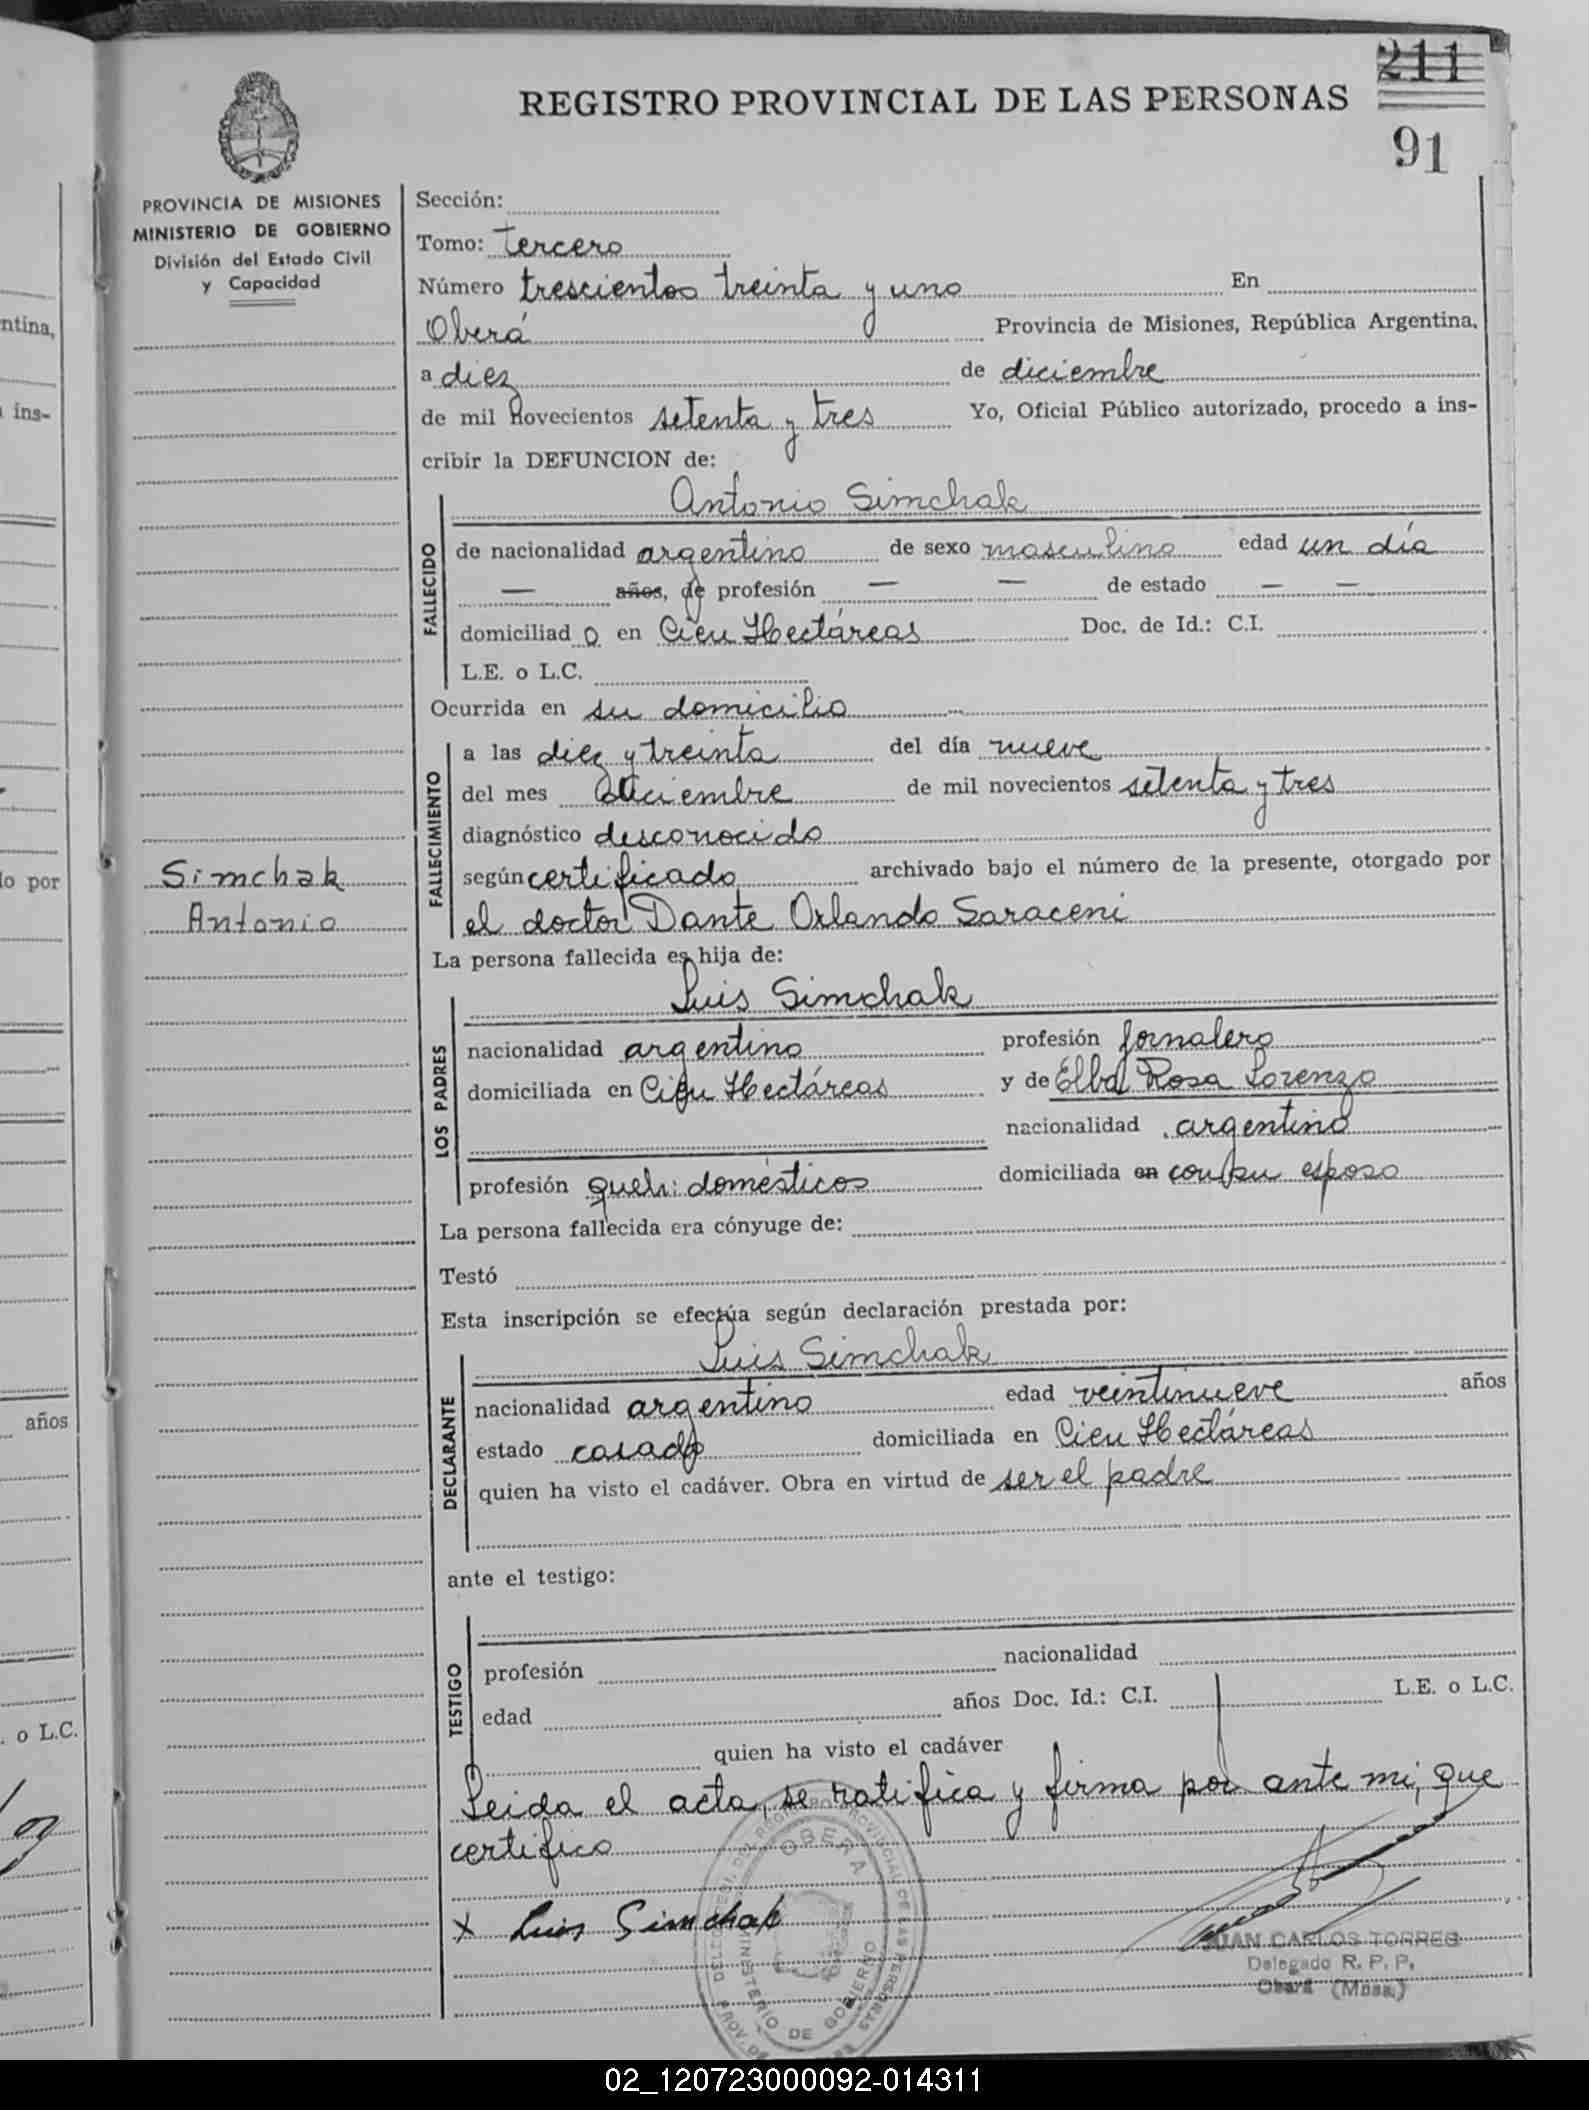 211
REGISTRO PROVINCIAL DE LAS PERSONAS
91
PROVINCIA DE MISIONES
MINISTERIO DE GOBIERNO
División del Estado Civil
y Capacidad
Simchak
Antonio
Sección:
Tomo: tercero
Número trescientos treinta y uno En
Oberá Provincia de Misiones, República Argentina,
a diez de diciembre
de mil novecientos setenta y tres Yo, Oficial Público autorizado, procedo a ins-
cribir la DEFUNCION de:
Antonio Simchak
FALLECIDO
de nacionalidad argentino de sexo masculino edad un día
— años, de profesión — — de estado — —
domiciliad o en Cien Hectáreas Doc. de Id.: C.I.
L.E. o L.C.
Ocurrida en su domicilio
FALLECIMIENTO
a las diez y treinta del día nueve
del mes diciembre de mil novecientos setenta y tres
diagnóstico desconocido
según certificado archivado bajo el número de la presente, otorgado por
el doctor Dante Orlando Saraceni
La persona fallecida es hija de:
Luis Simchak
LOS PADRES
nacionalidad argentino profesión jornalero
domiciliada en Cien Hectáreas y de Elba Rosa Lorenzo
nacionalidad argentina
profesión queh: domésticos domiciliada en con su esposo
La persona fallecida era cónyuge de:
Testó
Esta inscripción se efectúa según declaración prestada por:
Luis Simchak
DECLARANTE
nacionalidad argentino edad veintinueve años
estado casado domiciliada en Cien Hectáreas
quien ha visto el cadáver. Obra en virtud de ser el padre
ante el testigo:
TESTIGO
profesión nacionalidad
edad años Doc. Id.: C.I. L.E. o L.C.
quien ha visto el cadáver
Leida el acta, se ratifica y firma por ante mi, que
certifico
x Luis Simchak
OBERA
MINISTERIO DE GOBIERNO
JUAN CARLOS TORRES
Delegado R. P. P.
Oberá (Mnes.)
ntina,
ins-
lo por
años
. o L.C.
02_120723000092-014311